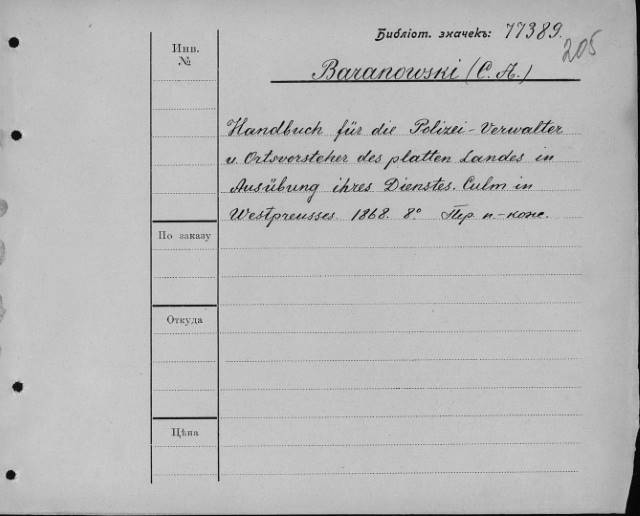 Библіот. значекъ: 77389.
205
Инв.
№
Baranowski (C. A.)
Handbuch für die Polizei-Verwalter
u. Ortsvorsteher des platten Landes in
Ausübung ihres Dienstes. Culm in
Westpreusses. 1868. 8° Пер. п.-кож.
По заказу
Откуда
Цѣна